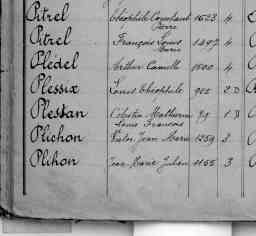 Pitrel Théophile Constant 1523 4
Pierre
Pitrel François Louis 1497 4
Marie
Plédel Arthur Camille 1500 4
Plessix Louis Théophile 902 2 D
Plestan Célestin Mathurin 79 1 D
Louis François
Plichon Victor Jean Marie 1259 3
Plihon Jean Marie Julien 1165 3